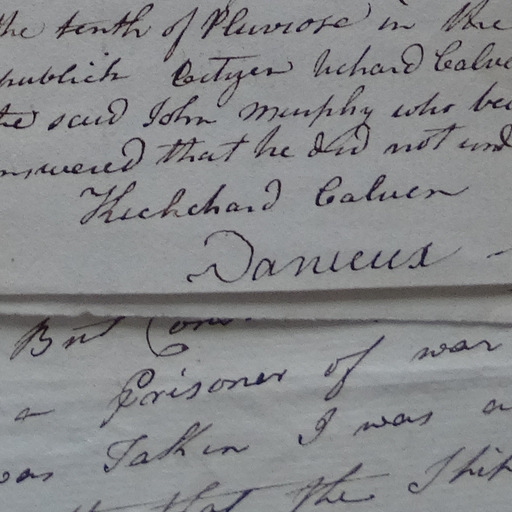 the tenth of Pluviose in the
publick Cityzen Uchard Calve
the said John Murphy who be
nswered that he did not und
Kuchchard Calven
Danieux
But Con
a Prisoner of war
was Taken I was a
that the Ship